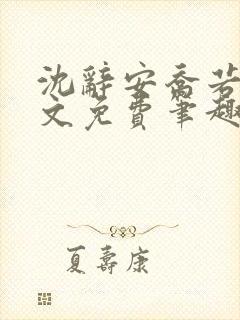 沈辭安喬若
文免費筆趣
夏壽康